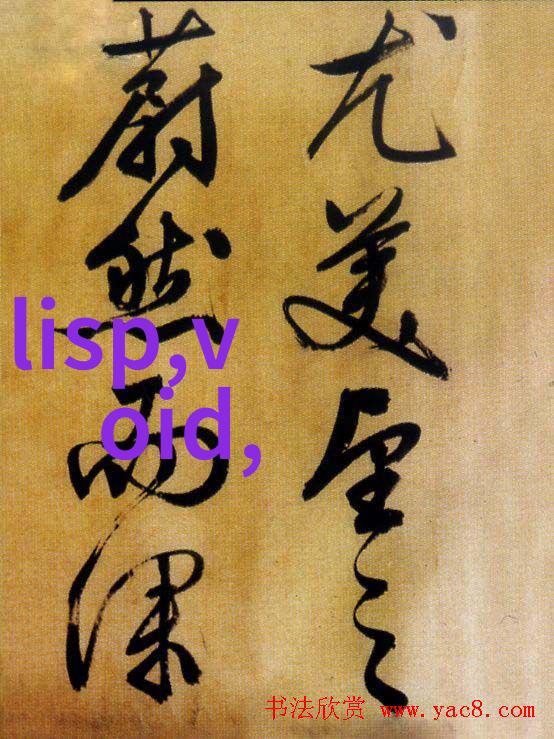 尤美望之
蔚然而深
lisp,v
oid,
书法欣赏 www.yac8.com